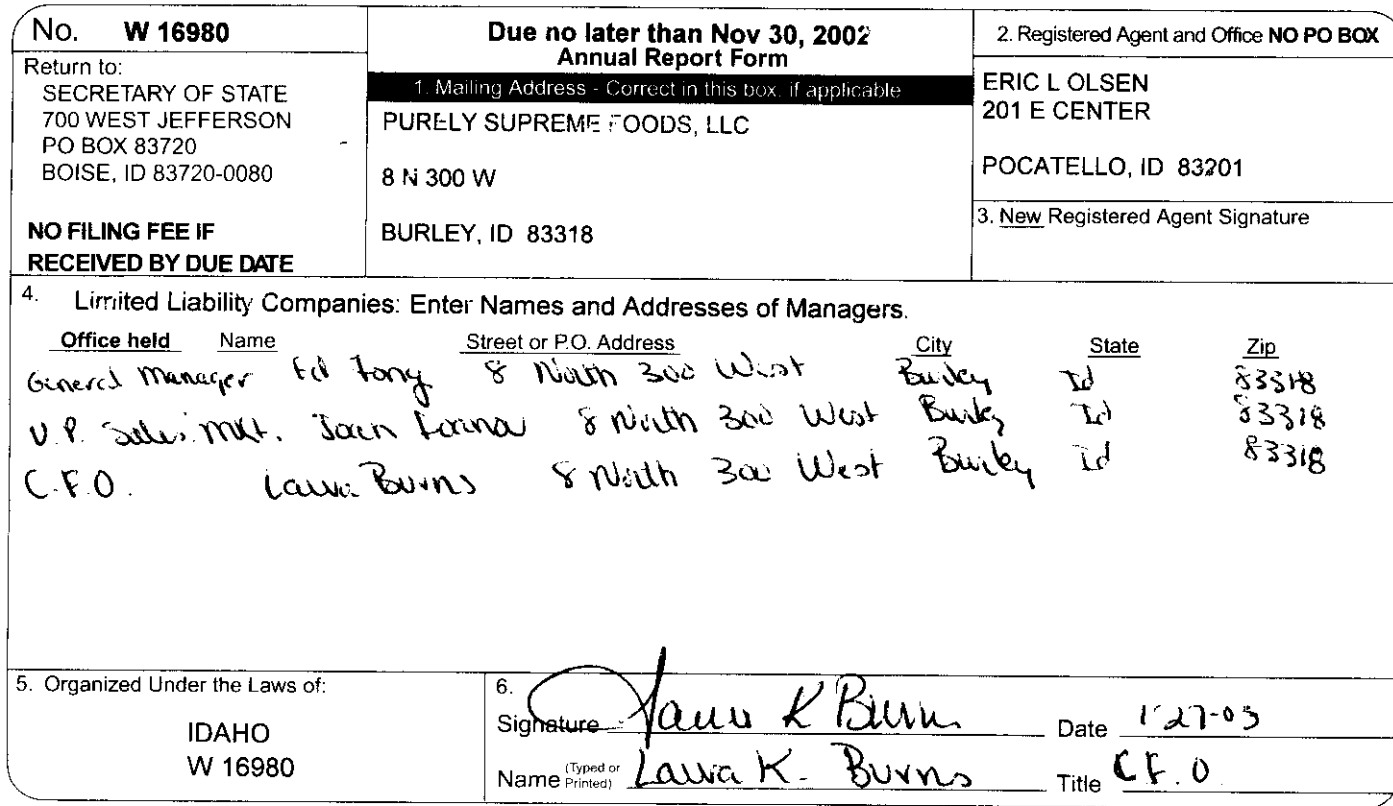 No. W 16980
Return to:
SECRETARY OF STATE
700 WEST JEFFERSON
PO BOX 83720
BOISE, ID 83720-0080
NO FILING FEE IF
RECEIVED BY DUE DATE
Due no later than Nov 30, 2002
Annual Report Form
1. Mailing Address - Correct in this box, if applicable
PURELY SUPREME FOODS, LLC
8 N 300 W
BURLEY, ID 83318
2. Registered Agent and Office NO PO BOX
ERIC L OLSEN
201 E CENTER
POCATELLO, ID 83201
3. New Registered Agent Signature
4. Limited Liability Companies: Enter Names and Addresses of Managers.
Office held Name Street or P.O. Address City State Zip
General Manager Ed 8 North 300 West Burley Id 83318
V.P. Sales. Mkt. 8 North 300 West Burley Id 83318
C.F.O. Laura Burns 8 North 300 West Burley Id 83318
5. Organized Under the Laws of:
IDAHO
W 16980
6.
Signature Laura K Burns Date 1-27-03
Name (Typed or Printed) Laura K. Burns Title C.F.O